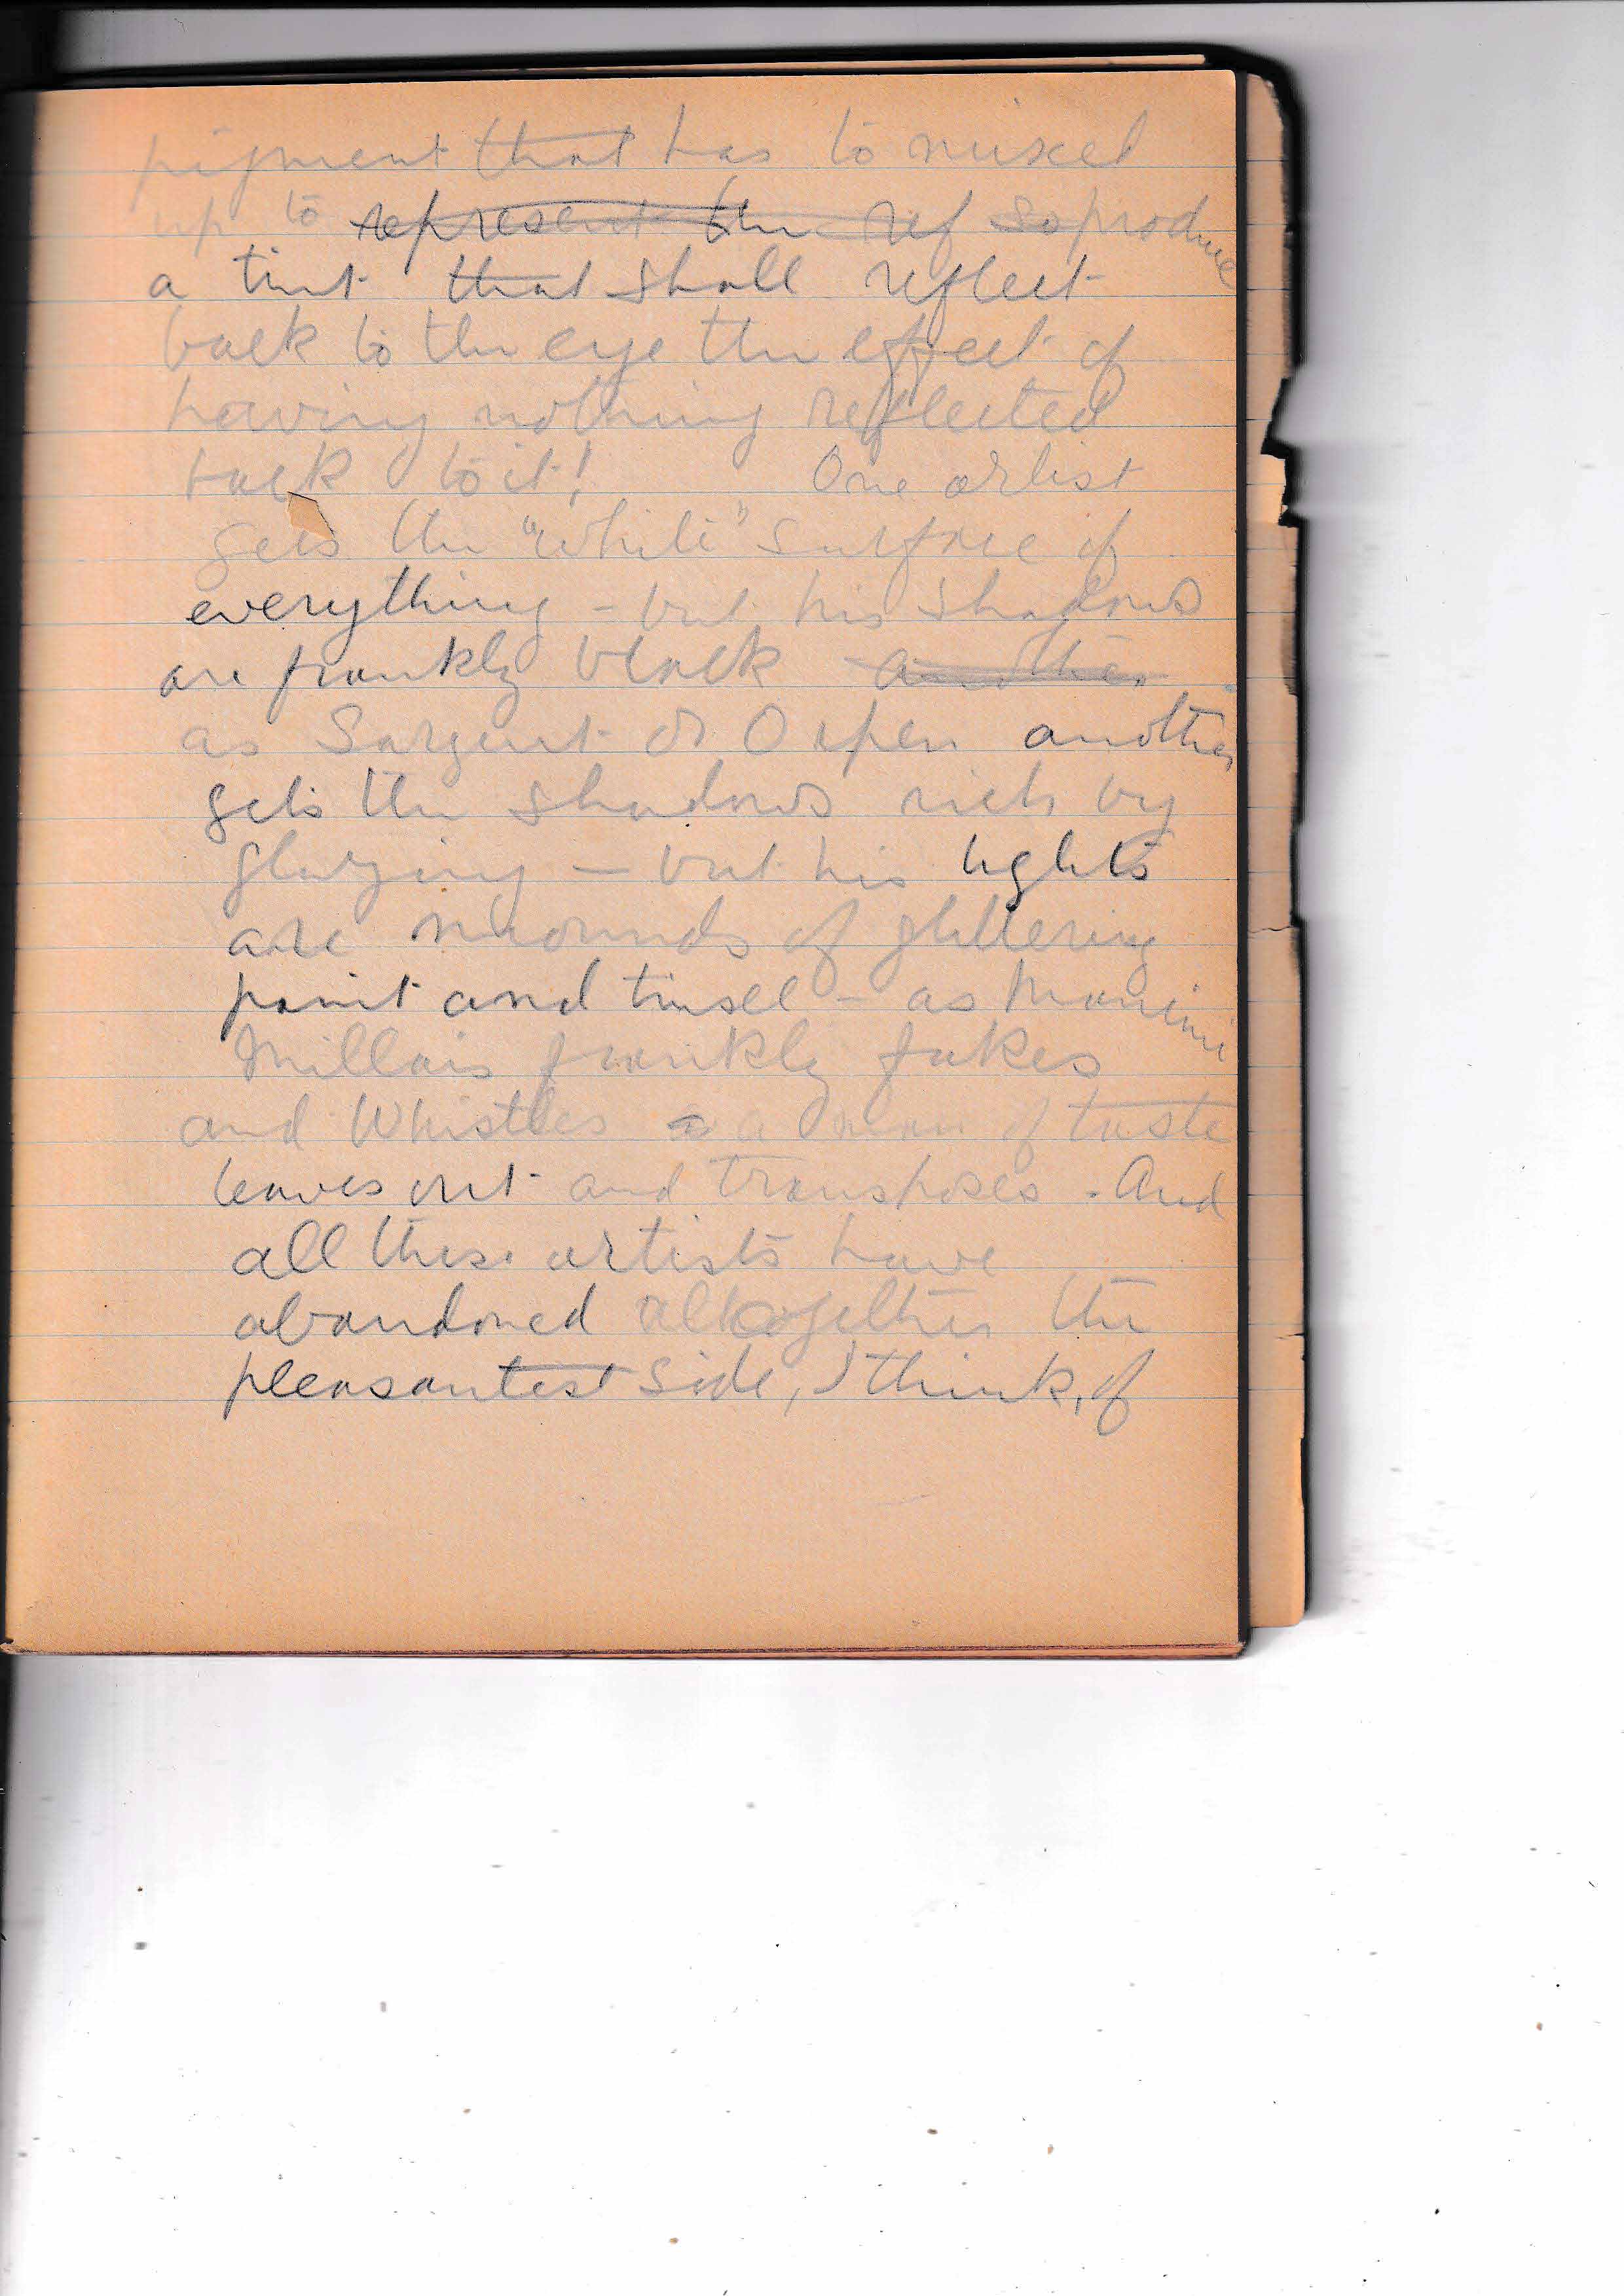 pigment that has to mixed
up to represent the ref so produce
a tint that shall reflect
back to the eye the effect of
having nothing reflected
back to it! One artist
gets the "white" surface of
everything - but his shadows
are frankly black another
as Sargent or Orpen another
gets the shadows rich by
glazing — but his lights
are mounds of glittering
paint and tinsel - as Mancini
Millais frankly fakes
and Whistler a man of taste
leaves out and transposes. And
all these artists have
abandoned altogether the
pleasantest side, I think, of